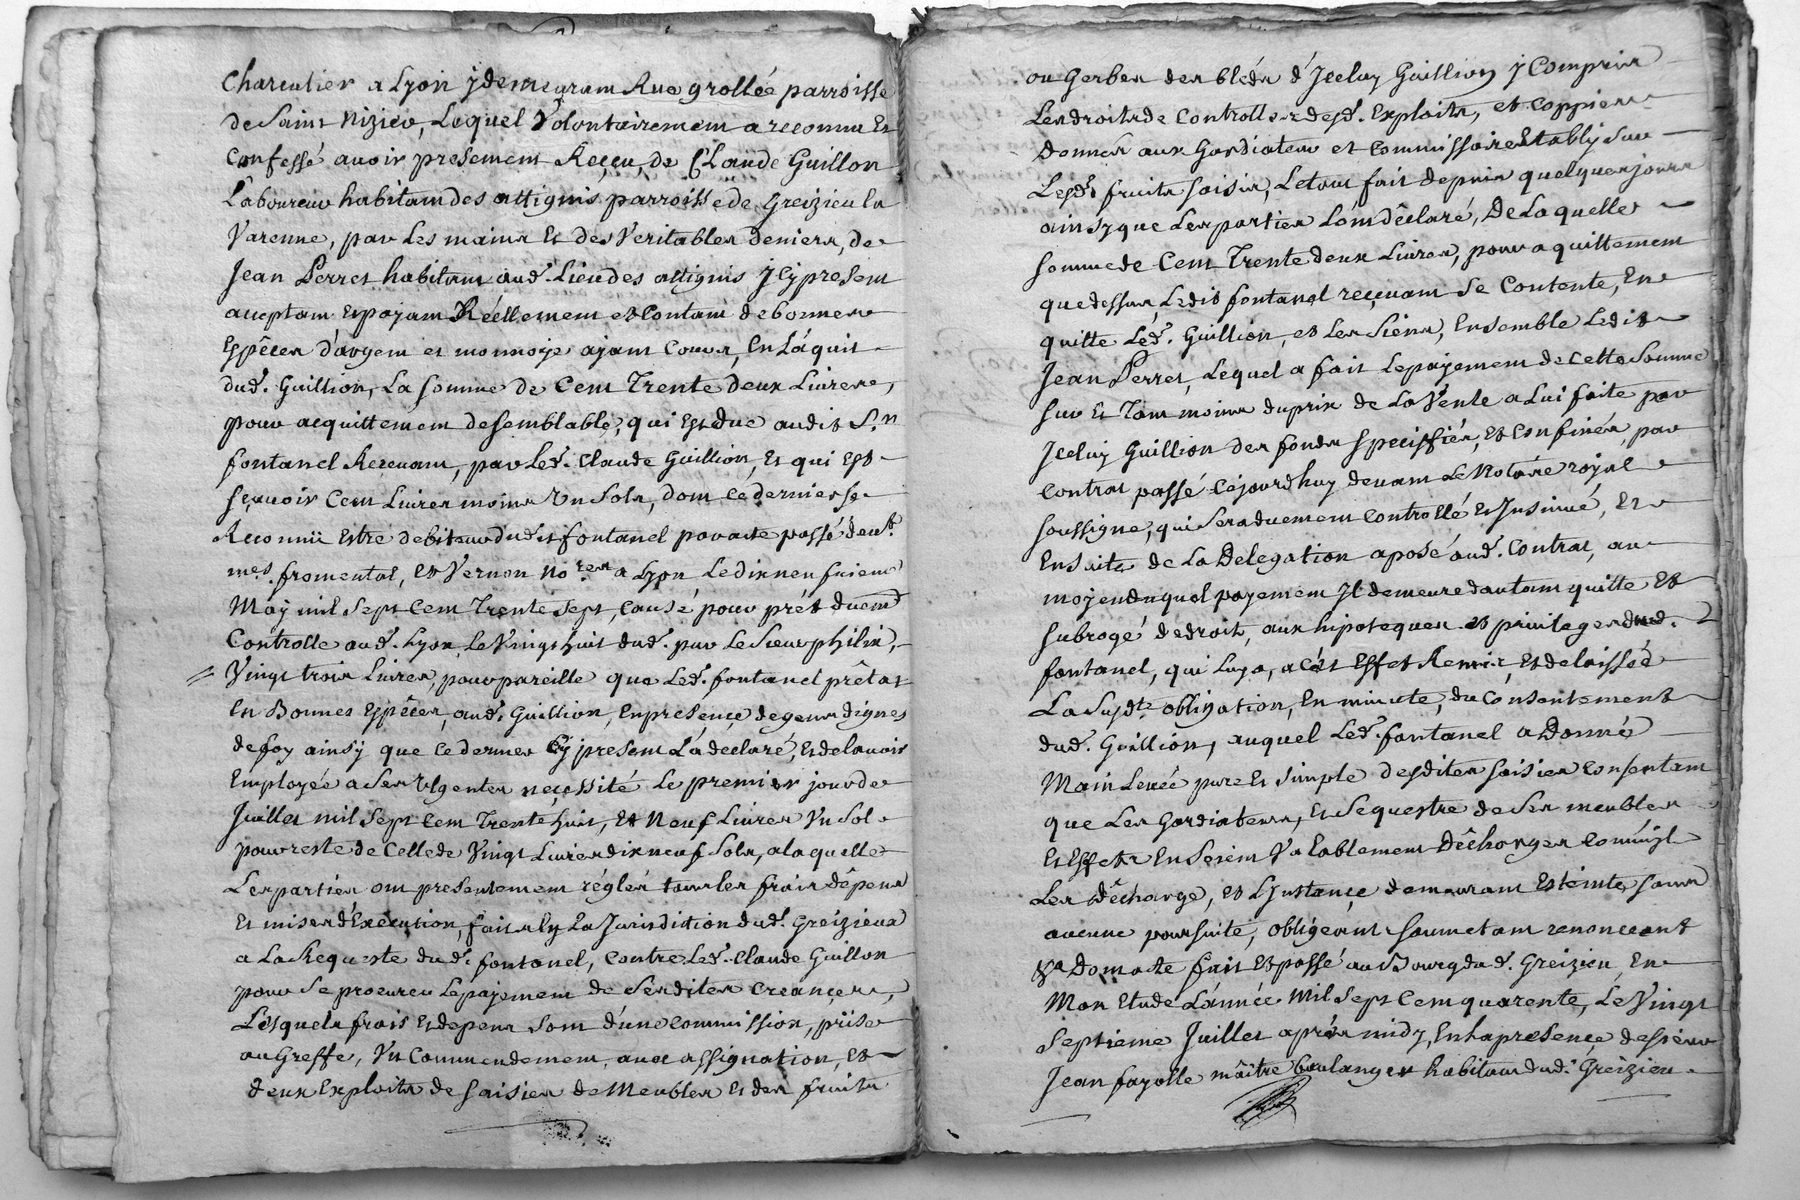 Charcutier a Lyon y demeurant Rue grollée parroisse
de Saint Nizier, Lequel Volontairement a reconnu Et
Confessé avoir presentement Reçeu, de Claude Guillon
Laboureur habitant des attignis parroisse de Greizieu la
Varenne, par Les mains Et des Veritables deniers, de
Jean Perret habitant aud. Lieu des attignis Icy present
aceptant Et payant Réellement et Contant de bonnes
Espêces d'argent et monnoye ajant Cours, En L'áquit
dud. Guillion, La somme de Cent Trente deux Livres,
pour acquittement de semblable, qui Est due audit S.n
fontanel Recevant, par Led. Claude Guillion, Et qui Est
sçavoir Cent Livres moins Un Sols, dont Ce dernier se
Reconnû Estre debiteur dudit fontanel par acte passé devt.
mes. fromental, et Vernon No.res a Lyon Le dix neufvieme
May mil Sept Cent Trente Sept, Causé pour prét duement
Controlle aud. Lyon Le Vingt huit dud. par Le Sieur philix,
Vingt trois Livres, pour pareille que Led. fontanel prêtat
En Bonnes Espêces, aud. Guillion, En presençe de gens dignes
de foy ainsy que Ce dernier Cy present L'á declaré, Et de L'avoir
Employée a Ses Urgentes neçessité Le premier jour de
Juillet mil Sept Cent Trente huit, Et Neuf Livres Un Sol
pour reste de Celle de Vingt Livres dix neuf Sols, a laquelle
Les parties ont presentement réglés tous les frais dépens
Et mises d'Execution, faits En La Jurisdiction dud. Greizieux
a La Requeste dud. fontanel, Contre Led. Claude Guillon
pour Se procurer Le payement de Ses dites Creançes,
Lesquels frais Et depens Sont d'une Commission, prise
au Greffe, Un Commendement, avec assignation, Et
deux Exploits de Saisies de Meubles Et des fruits
ou Gerbes des bléds d'Iceluy Guillion y Compris
Les droits de Controlle desd. Exploits, et Coppies
données aux Gardiateur et Commissaire Etably Sur
Lesd. fruits saisis, Le tout fait depuis quelques jours
ainsy que Les parties L'ont dêclaré, De Laquelle
somme de Cent Trente deux Livres, pour aquittement
que dessus, Ledit fontanel reçevant Se Contente, En
quitte Led. Guillion, et Les Siens, Ensemble Ledit
Jean Perret, Lequel a fait Le payement de Cette Somme
sur Et Tant moins du prix de La Vente a Lui faite par
Iceluy Guillion des fonds Speciffiés, Et Confinés par
Contrat passé Cejourd'huy devant Le Notaire royal
soussigne, qui Sera duement Controllé Et Insinué, Et
En suite de La Delegation aposé aud. Contrat, au
moyen duquel payement Il demeure d'autant quitte Et
subrogé de droit, aux hipoteques et privileges dud.
fontanel, qui Luy a, a Cét Effet Remis, Et delaissée
La Susdte. obligation, En minute, du Consentement
dud. Guillion, auquel Led. fontanel a Donné
Main Levée pure Et Simple desdites saisies Consentant
que Les Gardiateurs, Et Sequestre de Ses meubles
Et Effets En Soient Valablement Dêcharges Comm'il
Les Dêcharge, et L'Instançe demeurant Esteinte, sans
aucune poursuite, obligeant soumetant renonceant
&a Dont acte fait Et passé au Bourg dud. Greizieu, En
Mon Etude L'année Mil Sept Cent quarente, Le Vingt
Septieme Juillet aprés midy, En La presence de Sieur
Jean fayolle mâitre boulanger habitant dud. Greizieu.